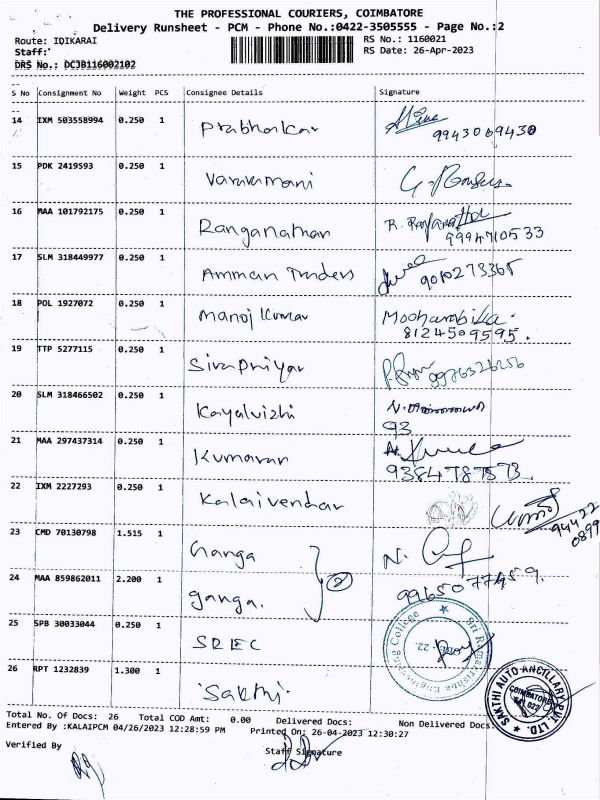 THE PROFESSIONAL COURIERS, COIMBATORE
Delivery Runsheet - PCM - Phone No.:0422-3505555 - Page No.:2
Route: IDIKARAI RS No.: 1160021
Staff: RS Date: 26-Apr-2023
DRS No.: DCJB116002102
S No Consignment No Weight PCS Consignee Details Signature
14 IXM 503558994 0.250 1 Prabhakar
9943069430
15 PDK 2419593 0.250 1
16 MAA 101792175 0.250 1 Ranganathan
9994710533
17 SLM 318449977 0.250 1 Amman Traders
9010273365
18 POL 1927072 0.250 1 Manoj Kumar
8124509595.
19 TTP 5277115 0.250 1 Sivapriyar
9976326256
20 SLM 318466502 0.250 1 Kayalvizhi
93
21 MAA 297437314 0.250 1 Kumaran
9384787573
22 IXM 2227293 0.250 1 Kalaivendhar
94422
0899
23 CMD 70130798 1.515 1 Ganga
24 MAA 859862011 2.200 1 ganga. 2
9965077459.
25 SPB 30033044 0.250 1 SREC
26 RPT 1232839 1.300 1 Sakthi
Sri Ramakrishna Engineering College
SAKTHI AUTO ANCILLARY PVT. LTD.
COIMBATORE
641 022
Total No. Of Docs: 26 Total COD Amt: 0.00 Delivered Docs: Non Delivered Docs:
Entered By :KALAIPCM 04/26/2023 12:28:59 PM Printed On: 26-04-2023 12:30:27
Verified By Staff Signature